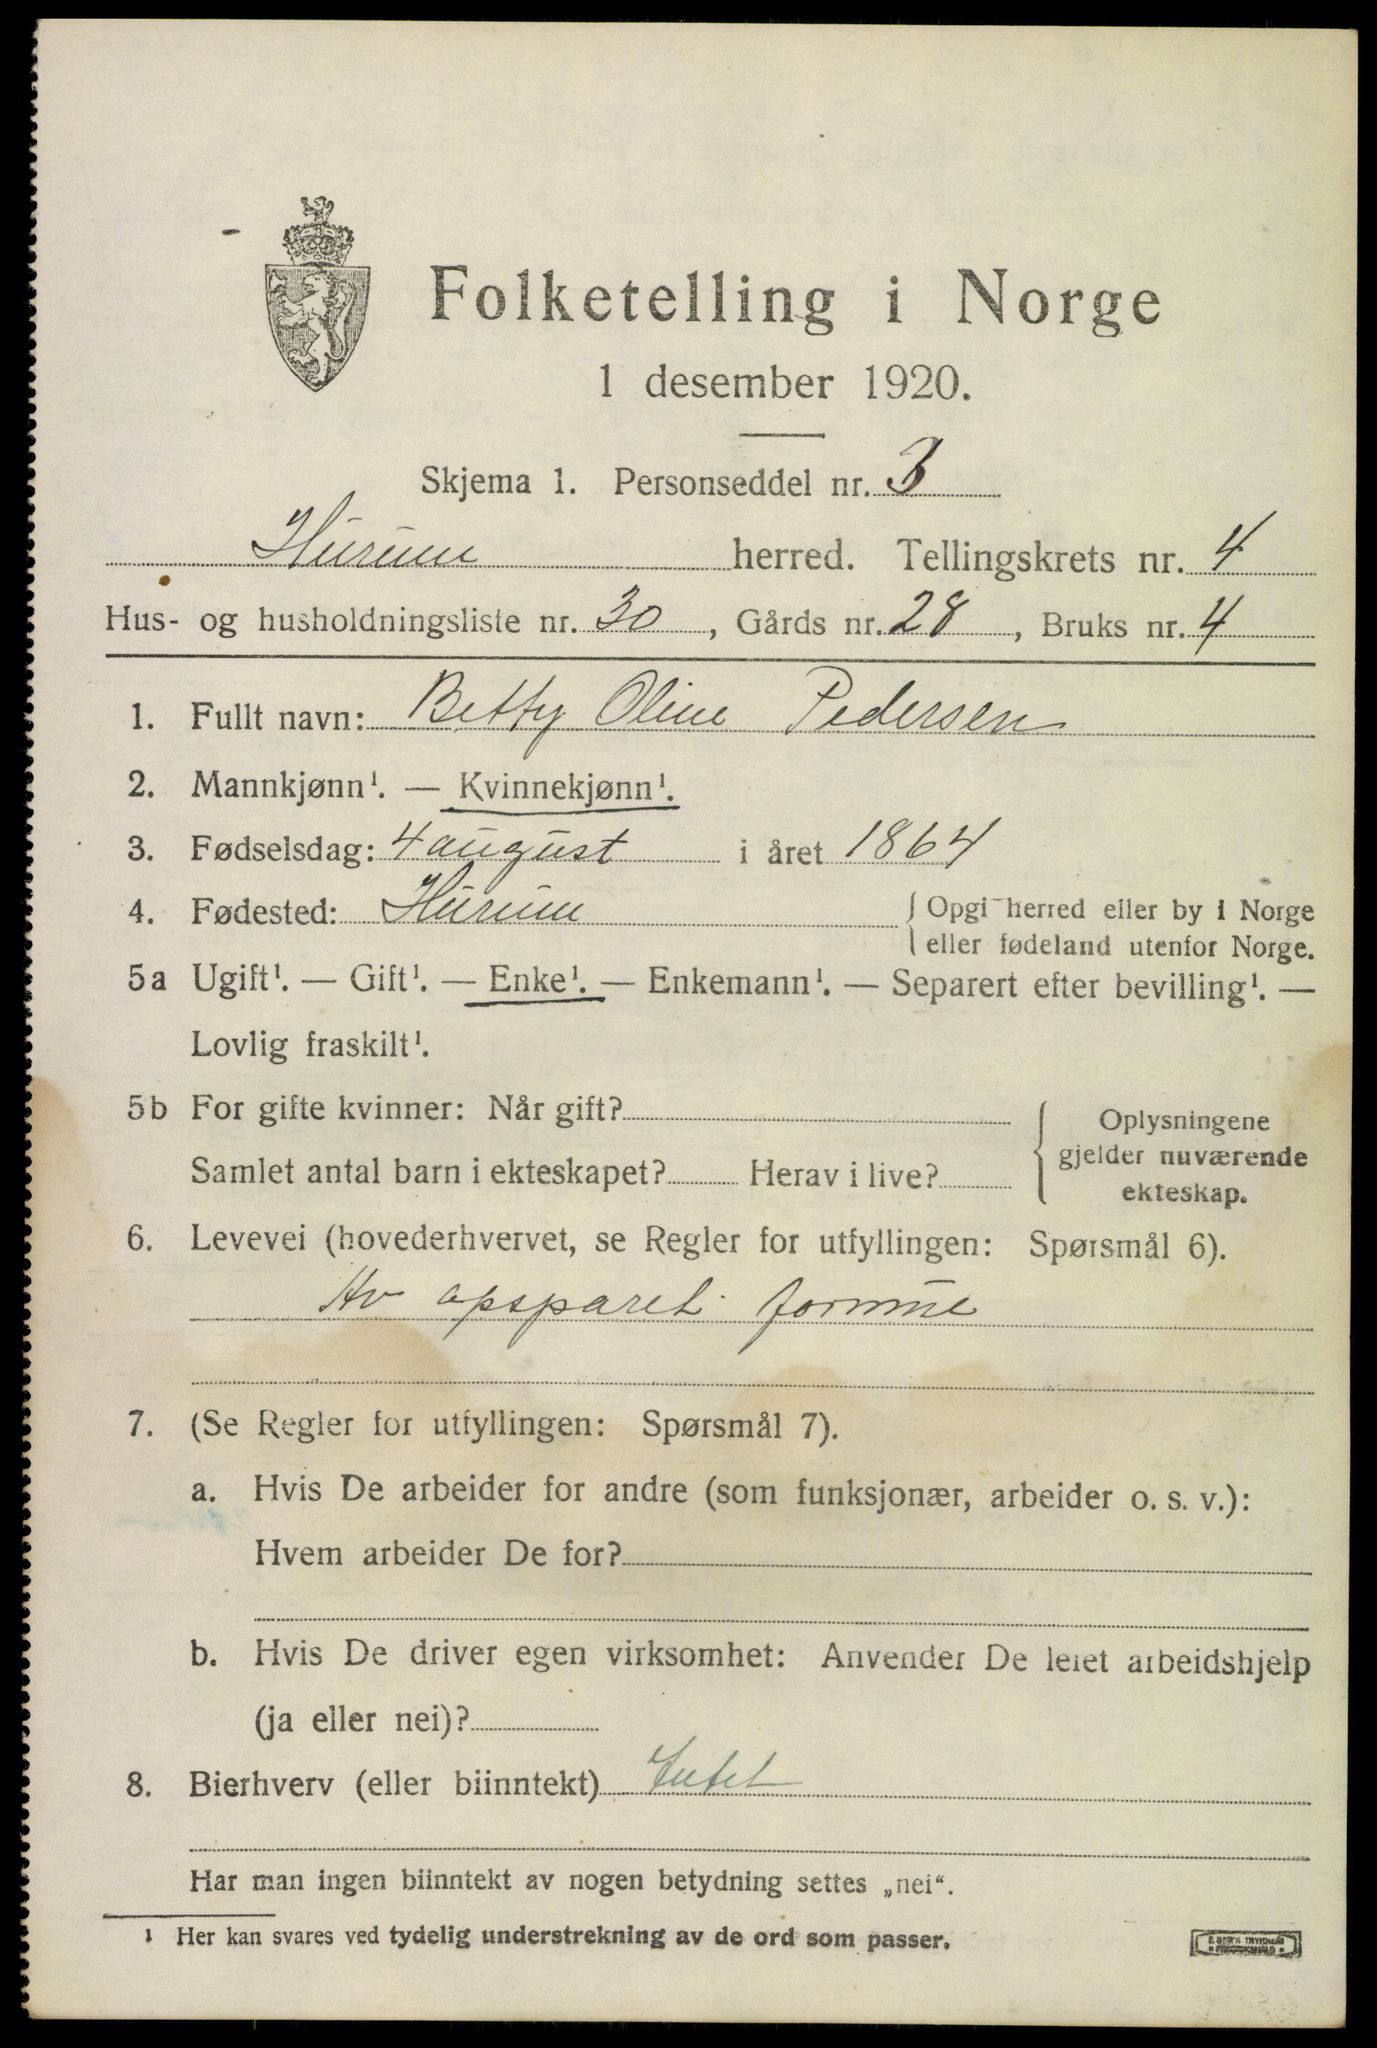 Folketelling i Norge
1 desember 1920.
Skjema 1. Personseddel nr. 3
Hurum herred. Tellingskrets nr. 4
Hus- og husholdningsliste nr. 30, Gårds nr. 28, Bruks nr. 4
1. Fullt navn: Betty Oline Pedersen
2. Mannkjønn¹. — Kvinnekjønn¹.
3. Fødselsdag: 4 august i året 1864
4. Fødested: Hurum { Opgi herred eller by i Norge
eller fødeland utenfor Norge.
5a Ugift¹. — Gift¹. — Enke¹. — Enkemann¹. — Separert efter bevilling¹. —
Lovlig fraskilt¹.
5b For gifte kvinner: Når gift?
Samlet antal barn i ekteskapet? Herav i live?
{ Oplysningene
gjelder nuværende
ekteskap.
6. Levevei (hovederhvervet, se Regler for utfyllingen: Spørsmål 6).
Av opsparet formue
7. (Se Regler for utfyllingen: Spørsmål 7).
a. Hvis De arbeider for andre (som funksjonær, arbeider o. s. v.):
Hvem arbeider De for?
b. Hvis De driver egen virksomhet: Anvender De leiet arbeidshjelp
(ja eller nei)?
8. Bierhverv (eller biinntekt) Intet
Har man ingen biinntekt av nogen betydning settes „nei“.
¹ Her kan svares ved tydelig understrekning av de ord som passer.